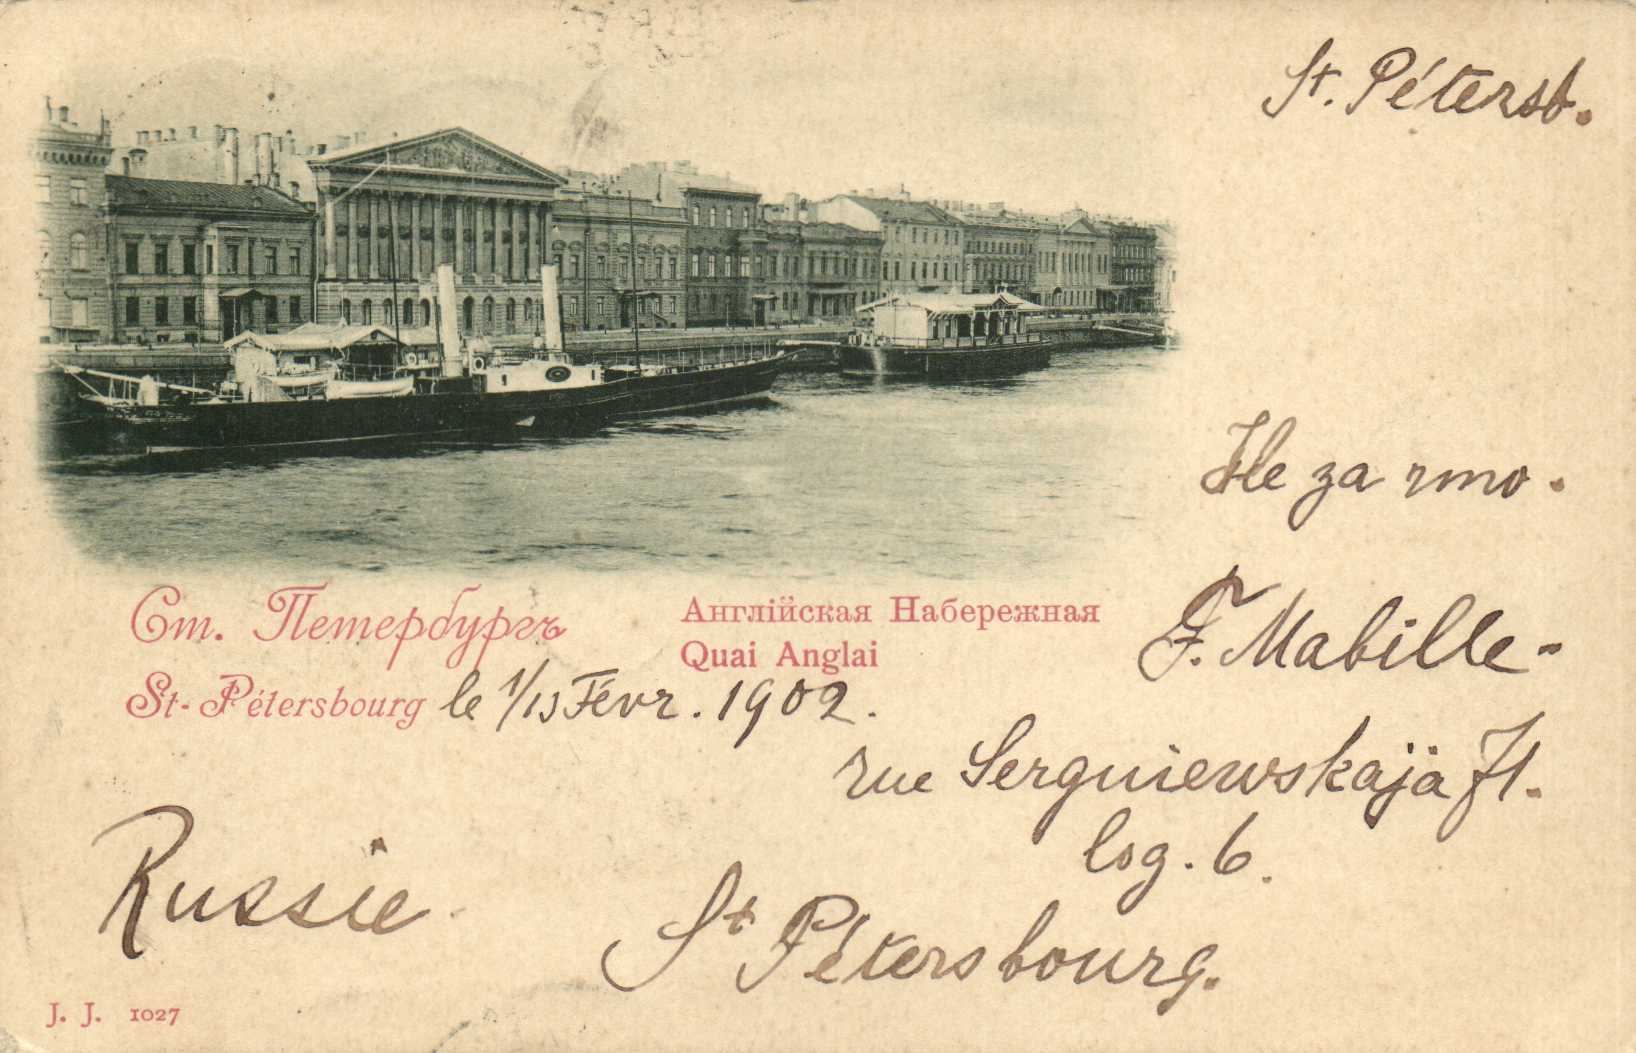 St. Pétersb.
Не за что.
F. Mabille-
Ст. Петербургъ
Англійская Набережная
Quai Anglai
St-Pétersbourg le 1/13 Févr. 1902.
rue Serguiewskaja 71.
log. 6.
Russie
St Pétersbourg.
J. J. 1027